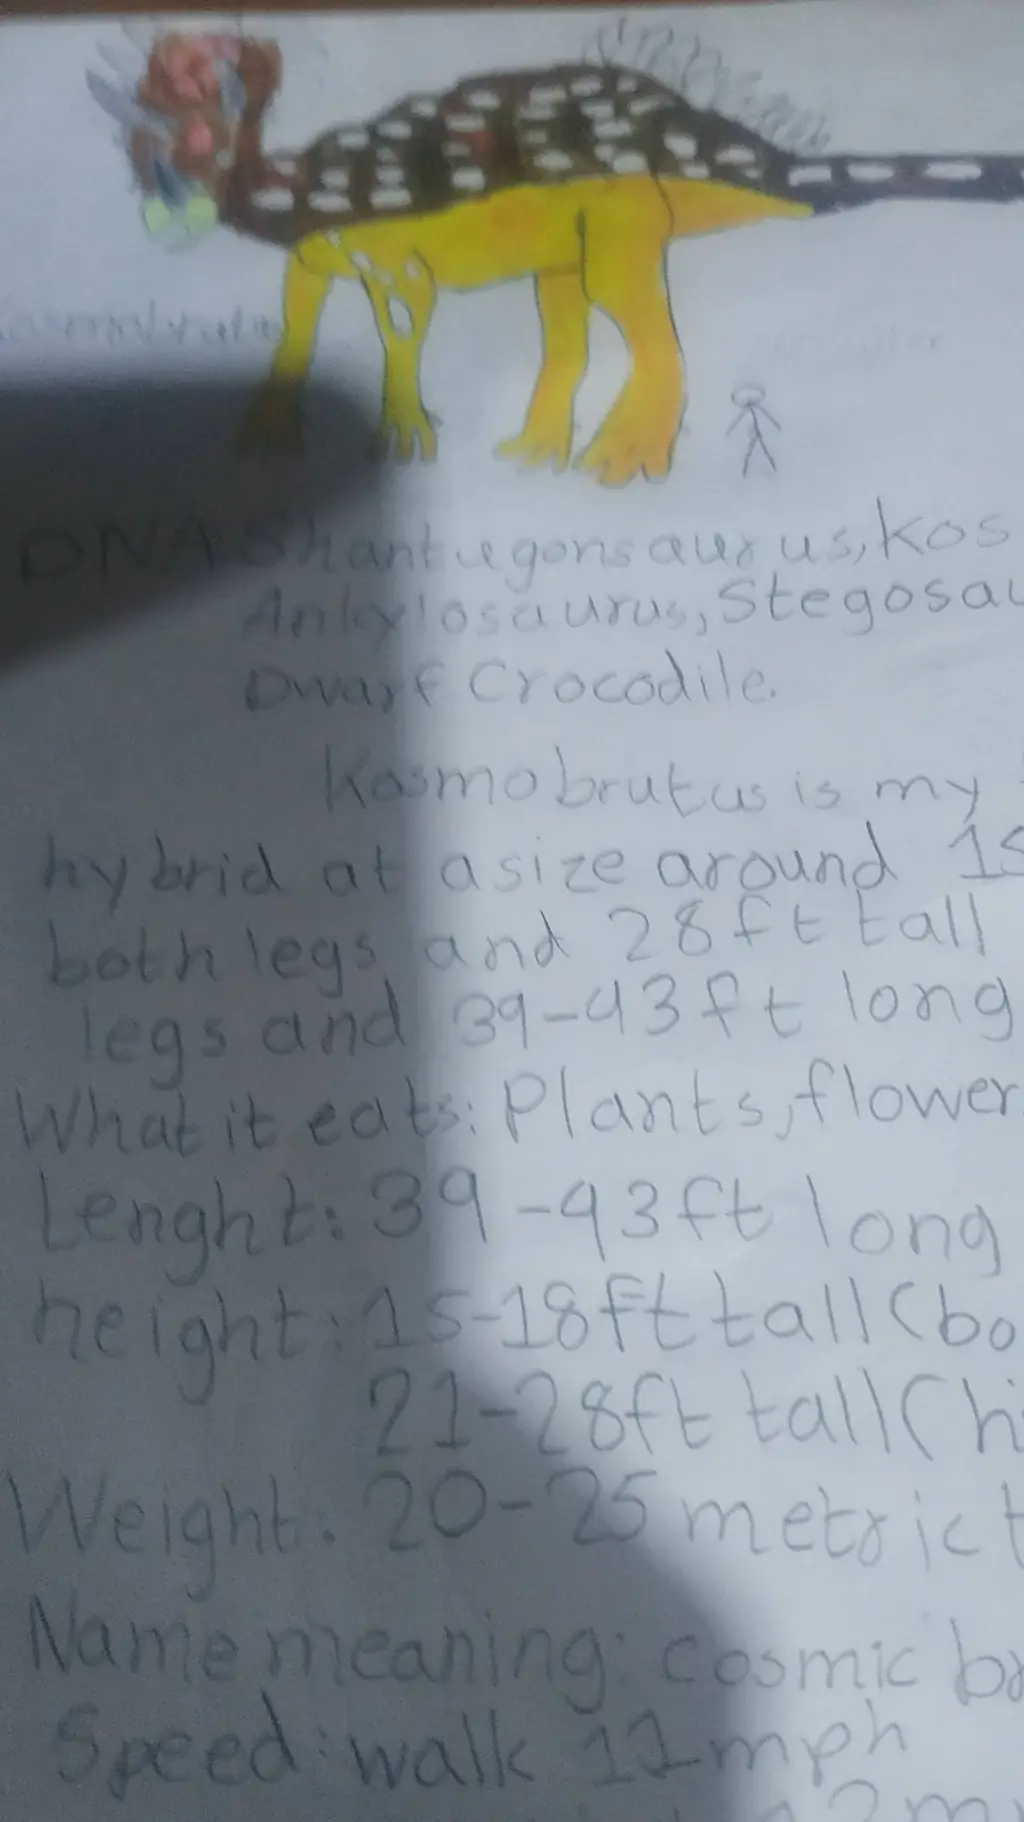 DNA Shantugonsaurus, Kos
Ankylosaurus, Stegosau
Dwarf Crocodile.
Kosmobrutus is my
hybrid at a size around 15
both legs and 28ft tall
legs and 39-43ft long
What it eats: Plants, flower
Lenght: 39-43ft long
height: 15-18ft tall (bo
21-28ft tall (hi
Weight: 20-25 metric t
Name meaning: cosmic br
Speed: walk 11mph